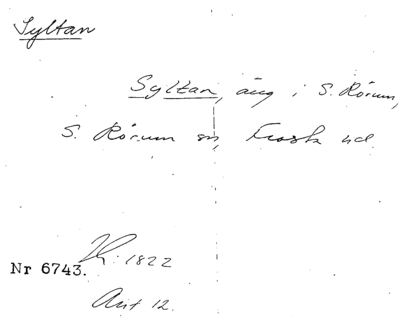 Syltan
Syltan, äng i S. Rörum,
S. Rörum sn, Frosta hd.
Nr 6743. 1822
Akt 12.